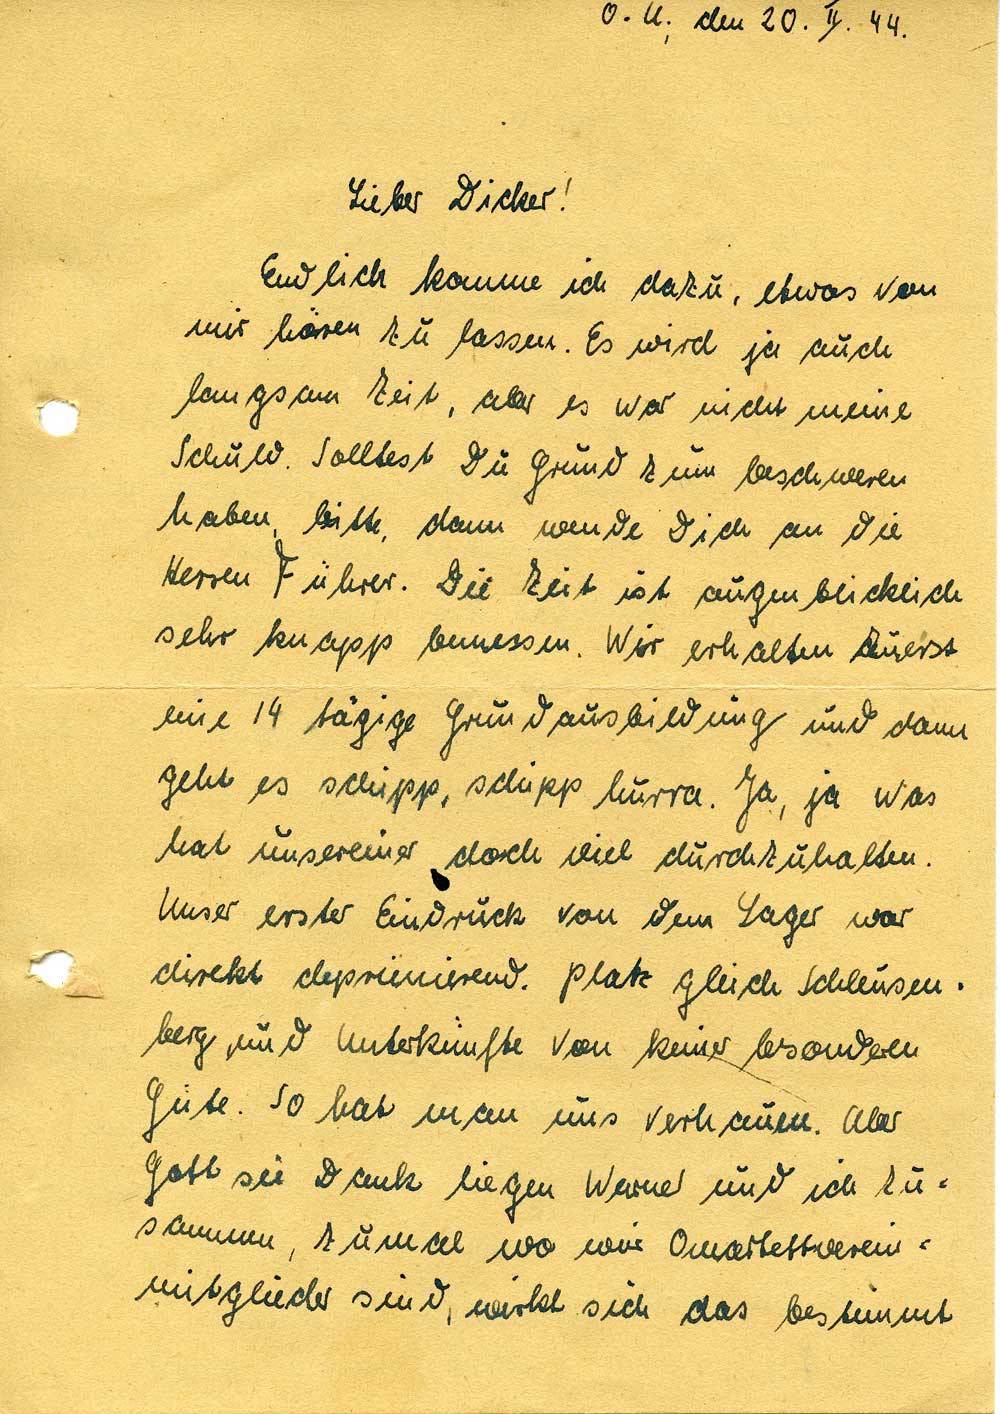 O. U., den 20. II. 44.
Lieber Dicker!
Endlich komme ich dazu, etwas von
mir hören zu lassen. Es wird ja auch
langsam Zeit, aber es war nicht meine
Schuld. Solltest Du Grund zum beschweren
haben, bitte, dann wende Dich an die
Herren Führer. Die Zeit ist augenblicklich
sehr knapp bemessen. Wir erhalten zuerst
eine 14 tägige Grundausbildung und dann
geht es schipp, schipp hurra. Ja, ja was
hat unsereiner doch viel durchzuhalten.
Unser erster Eindruck von dem Lager war
direkt deprimierend. Platz gleich Schleusen-
berg und Unterkünfte von keiner besonderen
Güte. So hat man uns verhauen. Aber
Gott sei Dank liegen Werner und ich zu-
sammen, zumal wo wir
mitglieder sind, wirkt sich das bestimmt